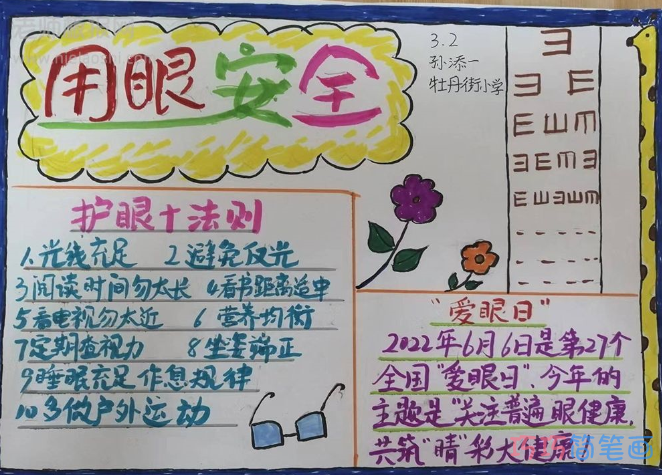 用眼安全
3.2
孙添一
牡丹街小学
护眼十法则
1.光线充足 2避免反光
3阅读时间勿太长 4看书距离适中
5看电视勿太近 6 营养均衡
7定期查视力 8坐姿端正
9睡眠充足 作息规律
10多做户外运动
ヨ
ヨ E
E Ш m
ヨ E m ヨ
E Ш ヨ Ш m
"爱眼日"
2022年6月6日是第27个
全国"爱眼日",今年的
主题是"关注普遍眼健康,
共筑"睛"彩大健康
简笔画